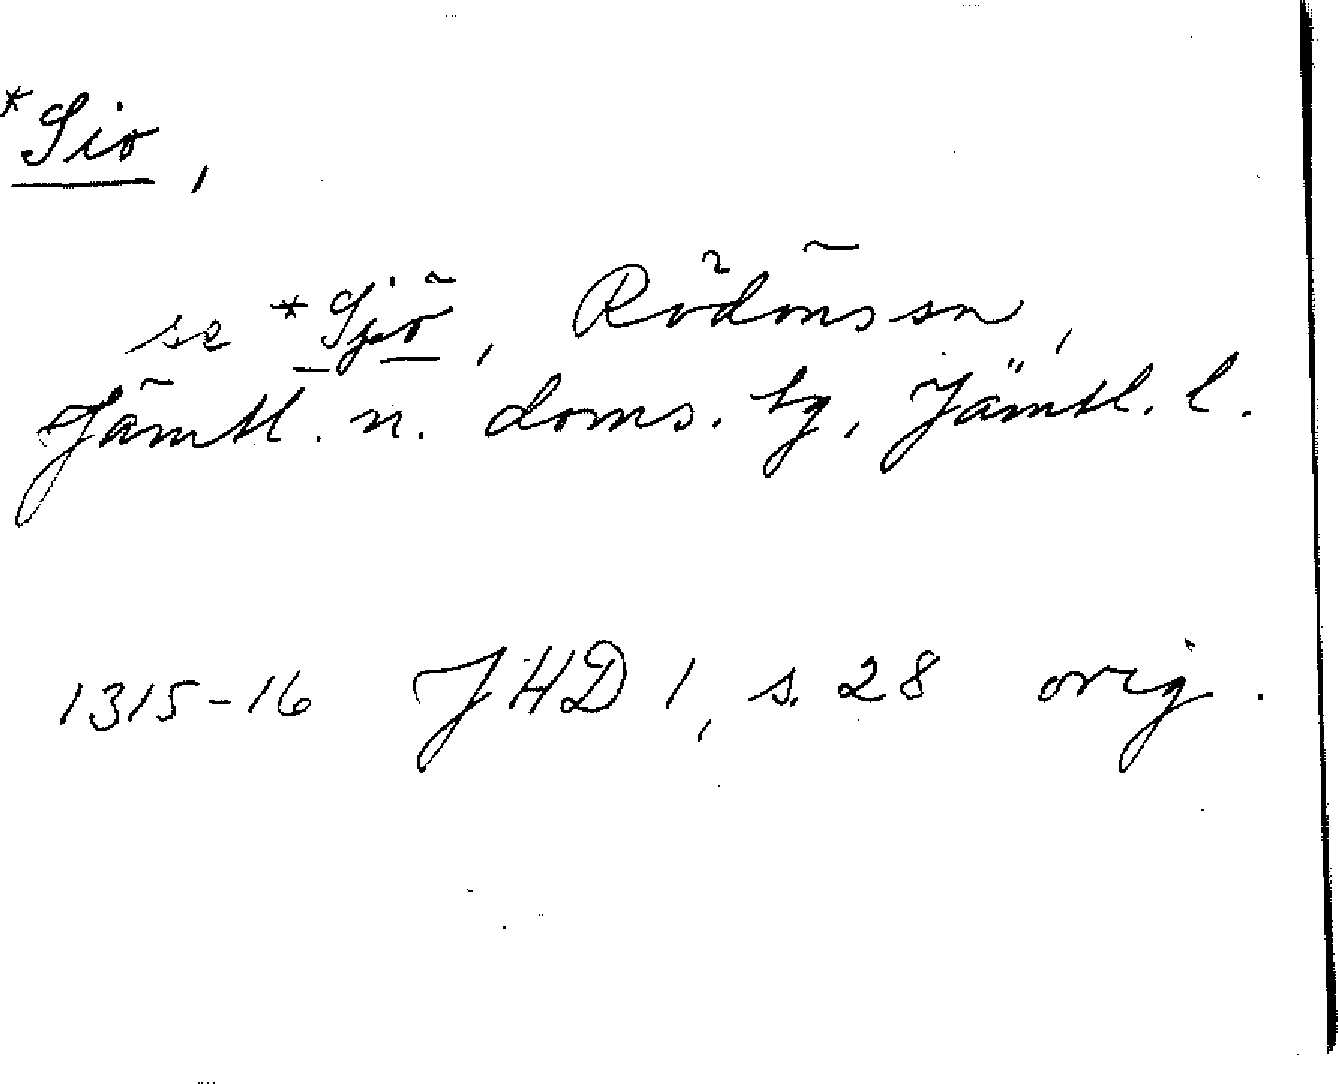 *Sio,
se *Sjö, Rödöns sn,
Jämtl. n. doms. tg, Jämtl. l.
1315-16 JHD 1, s. 28 orig.